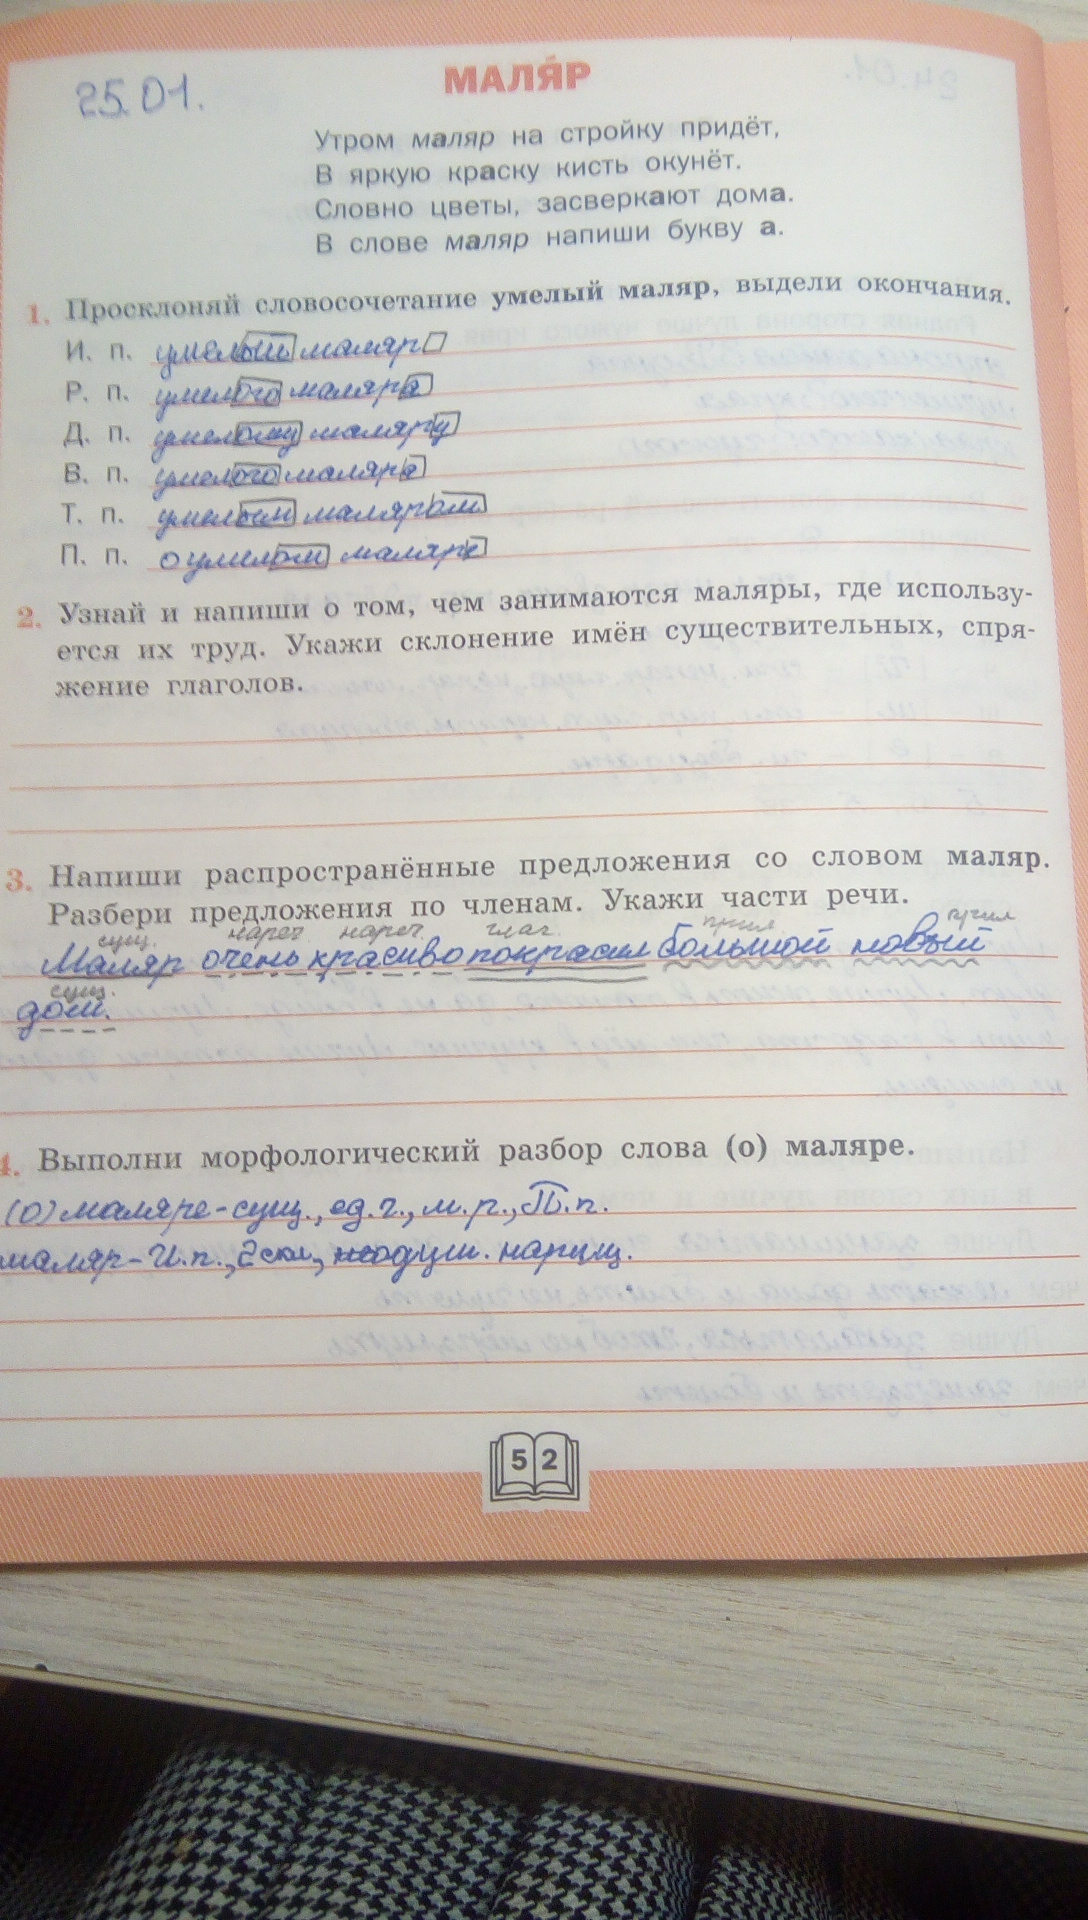 25.01.
МАЛЯ́Р
Утром маляр на стройку придёт,
В яркую краску кисть окунёт.
Словно цветы, засверкают дома.
В слове маляр напиши букву а.
1. Просклоняй словосочетание умелый маляр, выдели окончания.
И. п. умелый маляр
Р. п. умелого маляра
Д. п. умелому маляру
В. п. умелого маляра
Т. п. умелым маляром
П. п. о умелом маляре
2. Узнай и напиши о том, чем занимаются маляры, где использу-
ется их труд. Укажи склонение имён существительных, спря-
жение глаголов.
3. Напиши распространённые предложения со словом маляр.
Разбери предложения по членам. Укажи части речи.
сущ. нареч нареч глаг. прил прил
Маляр очень красиво покрасил большой новый
сущ.
дом.
4. Выполни морфологический разбор слова (о) маляре.
(о) маляре - сущ., ед.ч., м.р., П.п.
маляр - И.п., 2 скл., одуш. нариц.
52